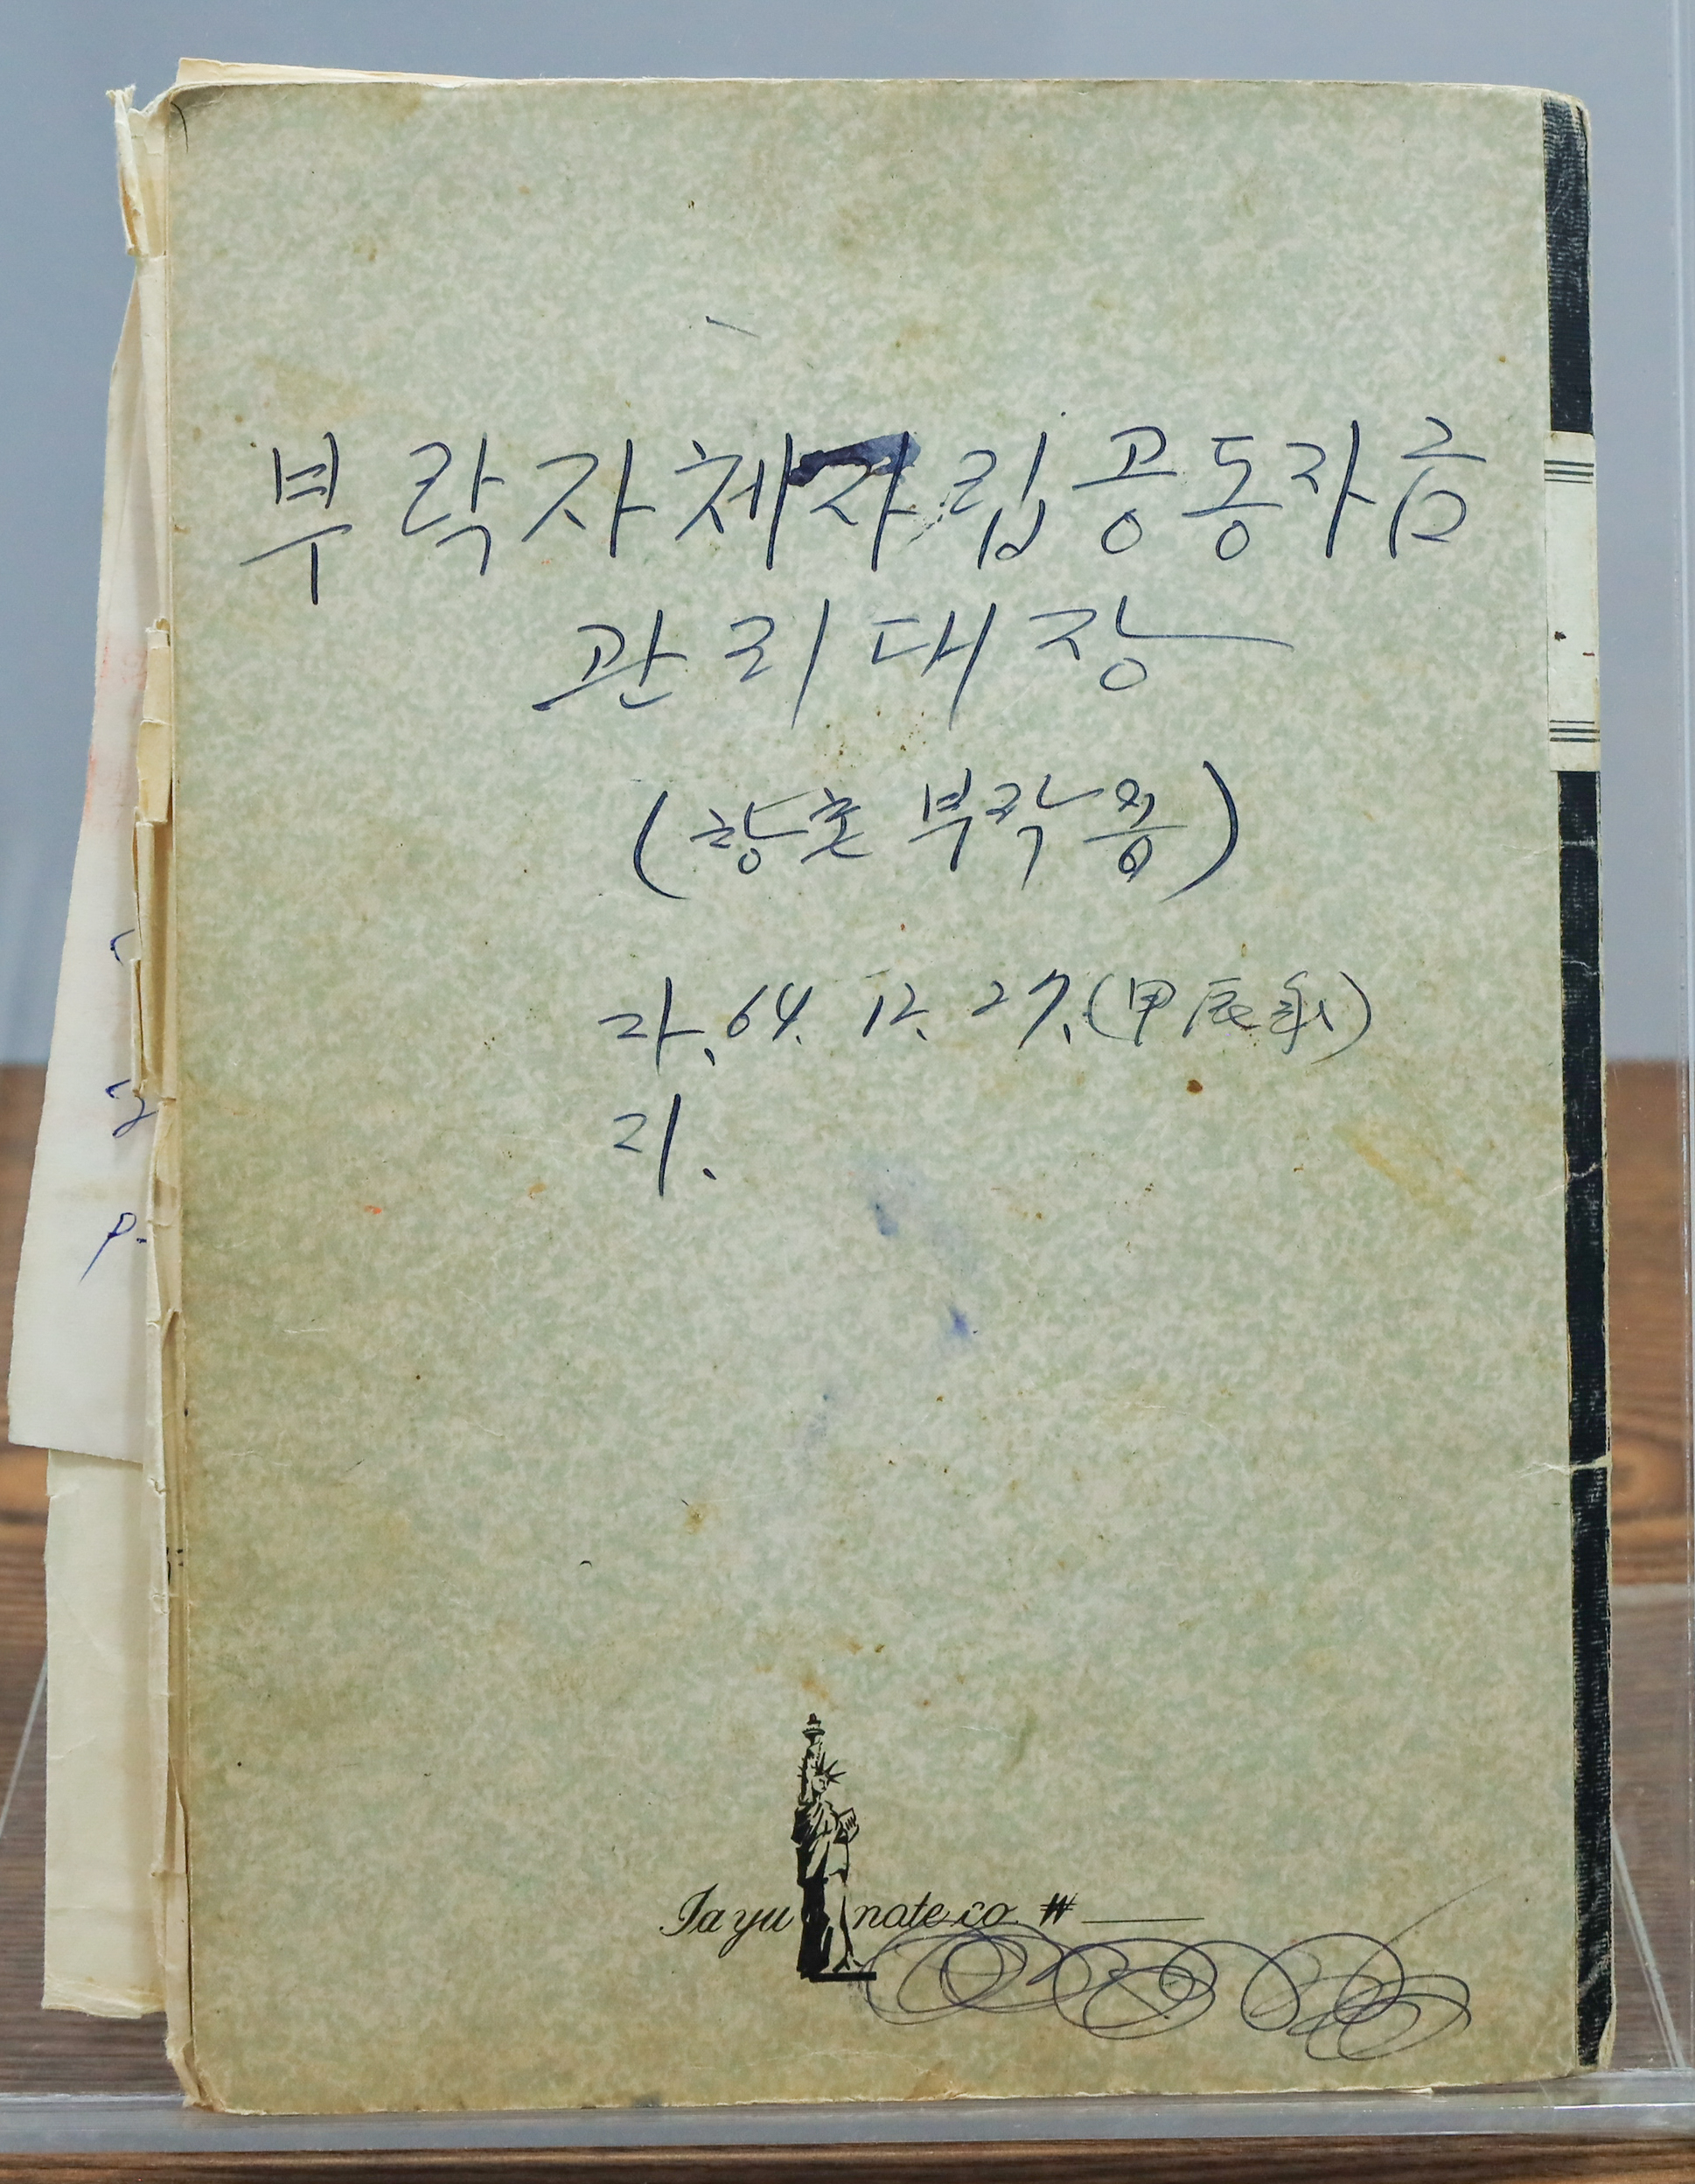 부락자체자립공동자금
관리대장
(향촌 부락용)
자. 64. 12. 27. (甲辰年)
지.
Jayu note co. ₩